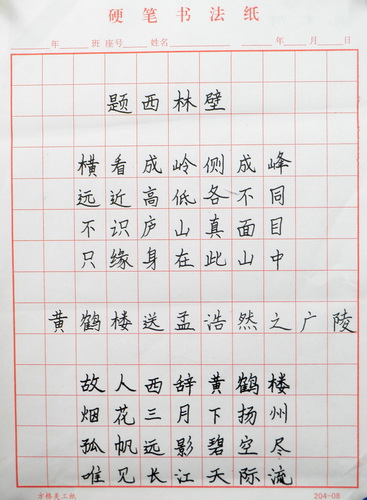 硬笔书法纸
年 班 座号 姓名 年 月 日
题西林壁
横看成岭侧成峰
远近高低各不同
不识庐山真面目
只缘身在此山中
黄鹤楼送孟浩然之广陵
故人西辞黄鹤楼
烟花三月下扬州
孤帆远影碧空尽
唯见长江天际流
方格美工纸 204-08